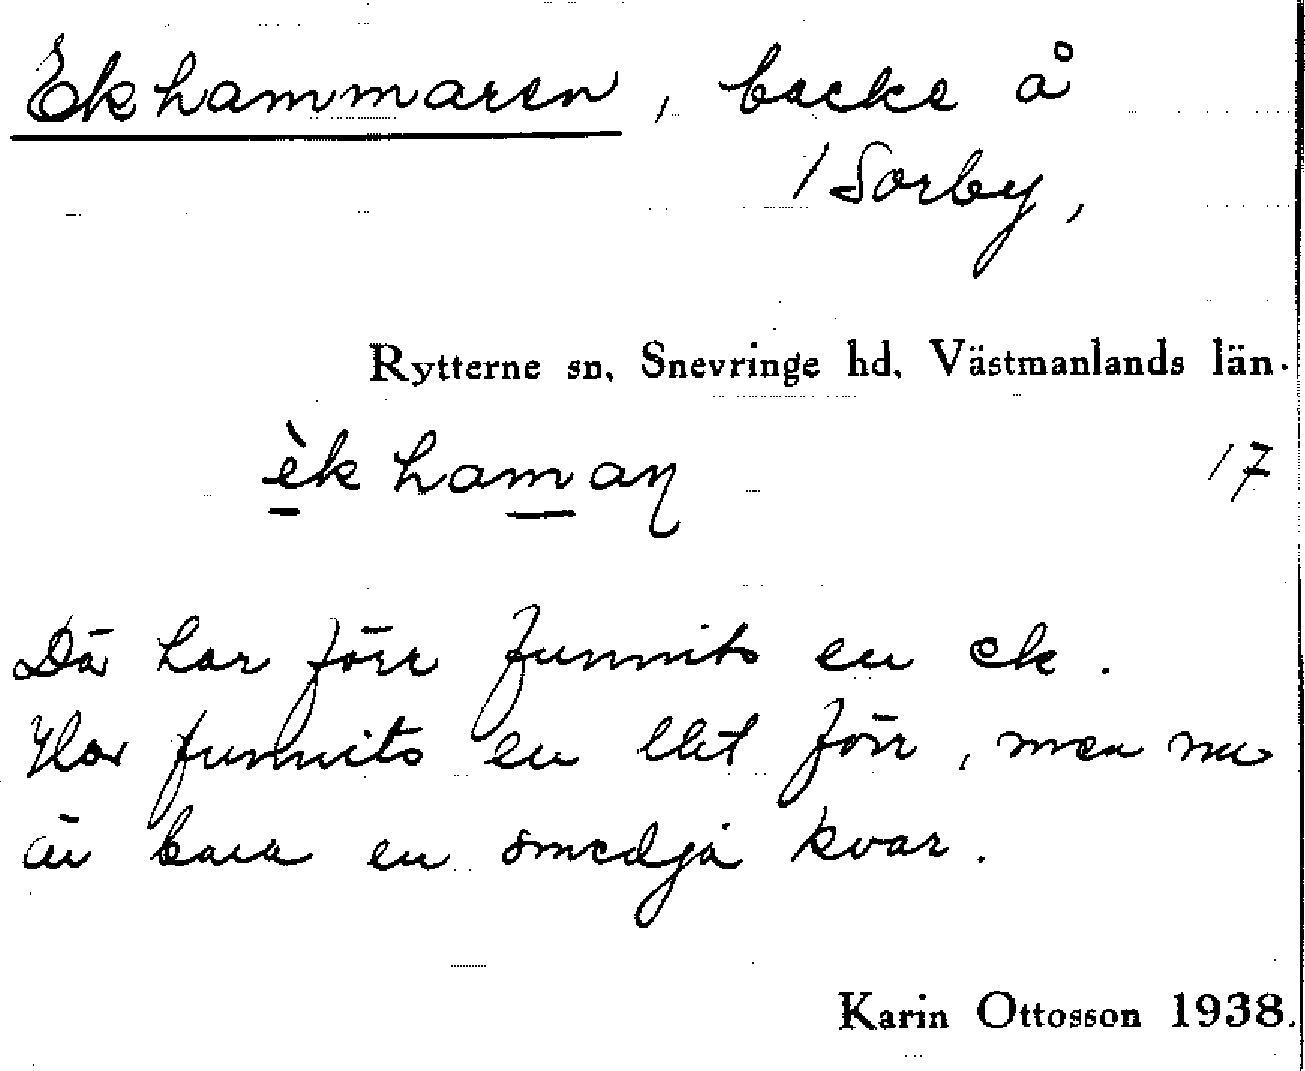 Ekhammaren, backe å
/Sorby,
Rytterne sn, Snevringe hd, Västmanlands län.
èkhamaƞ 17
Dä har förr funnits en ek.
Har funnits en förr, men nu
är bara en smedja kvar.
Karin Ottosson 1938.